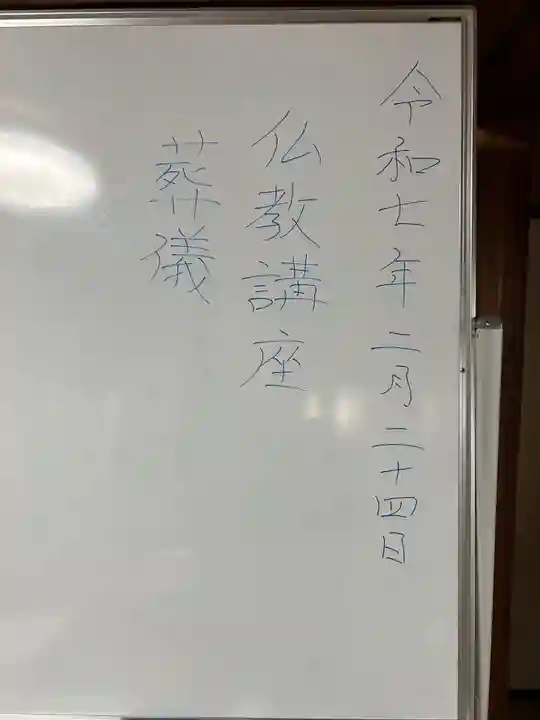 令和七年二月二十四日
仏教講座
葬儀